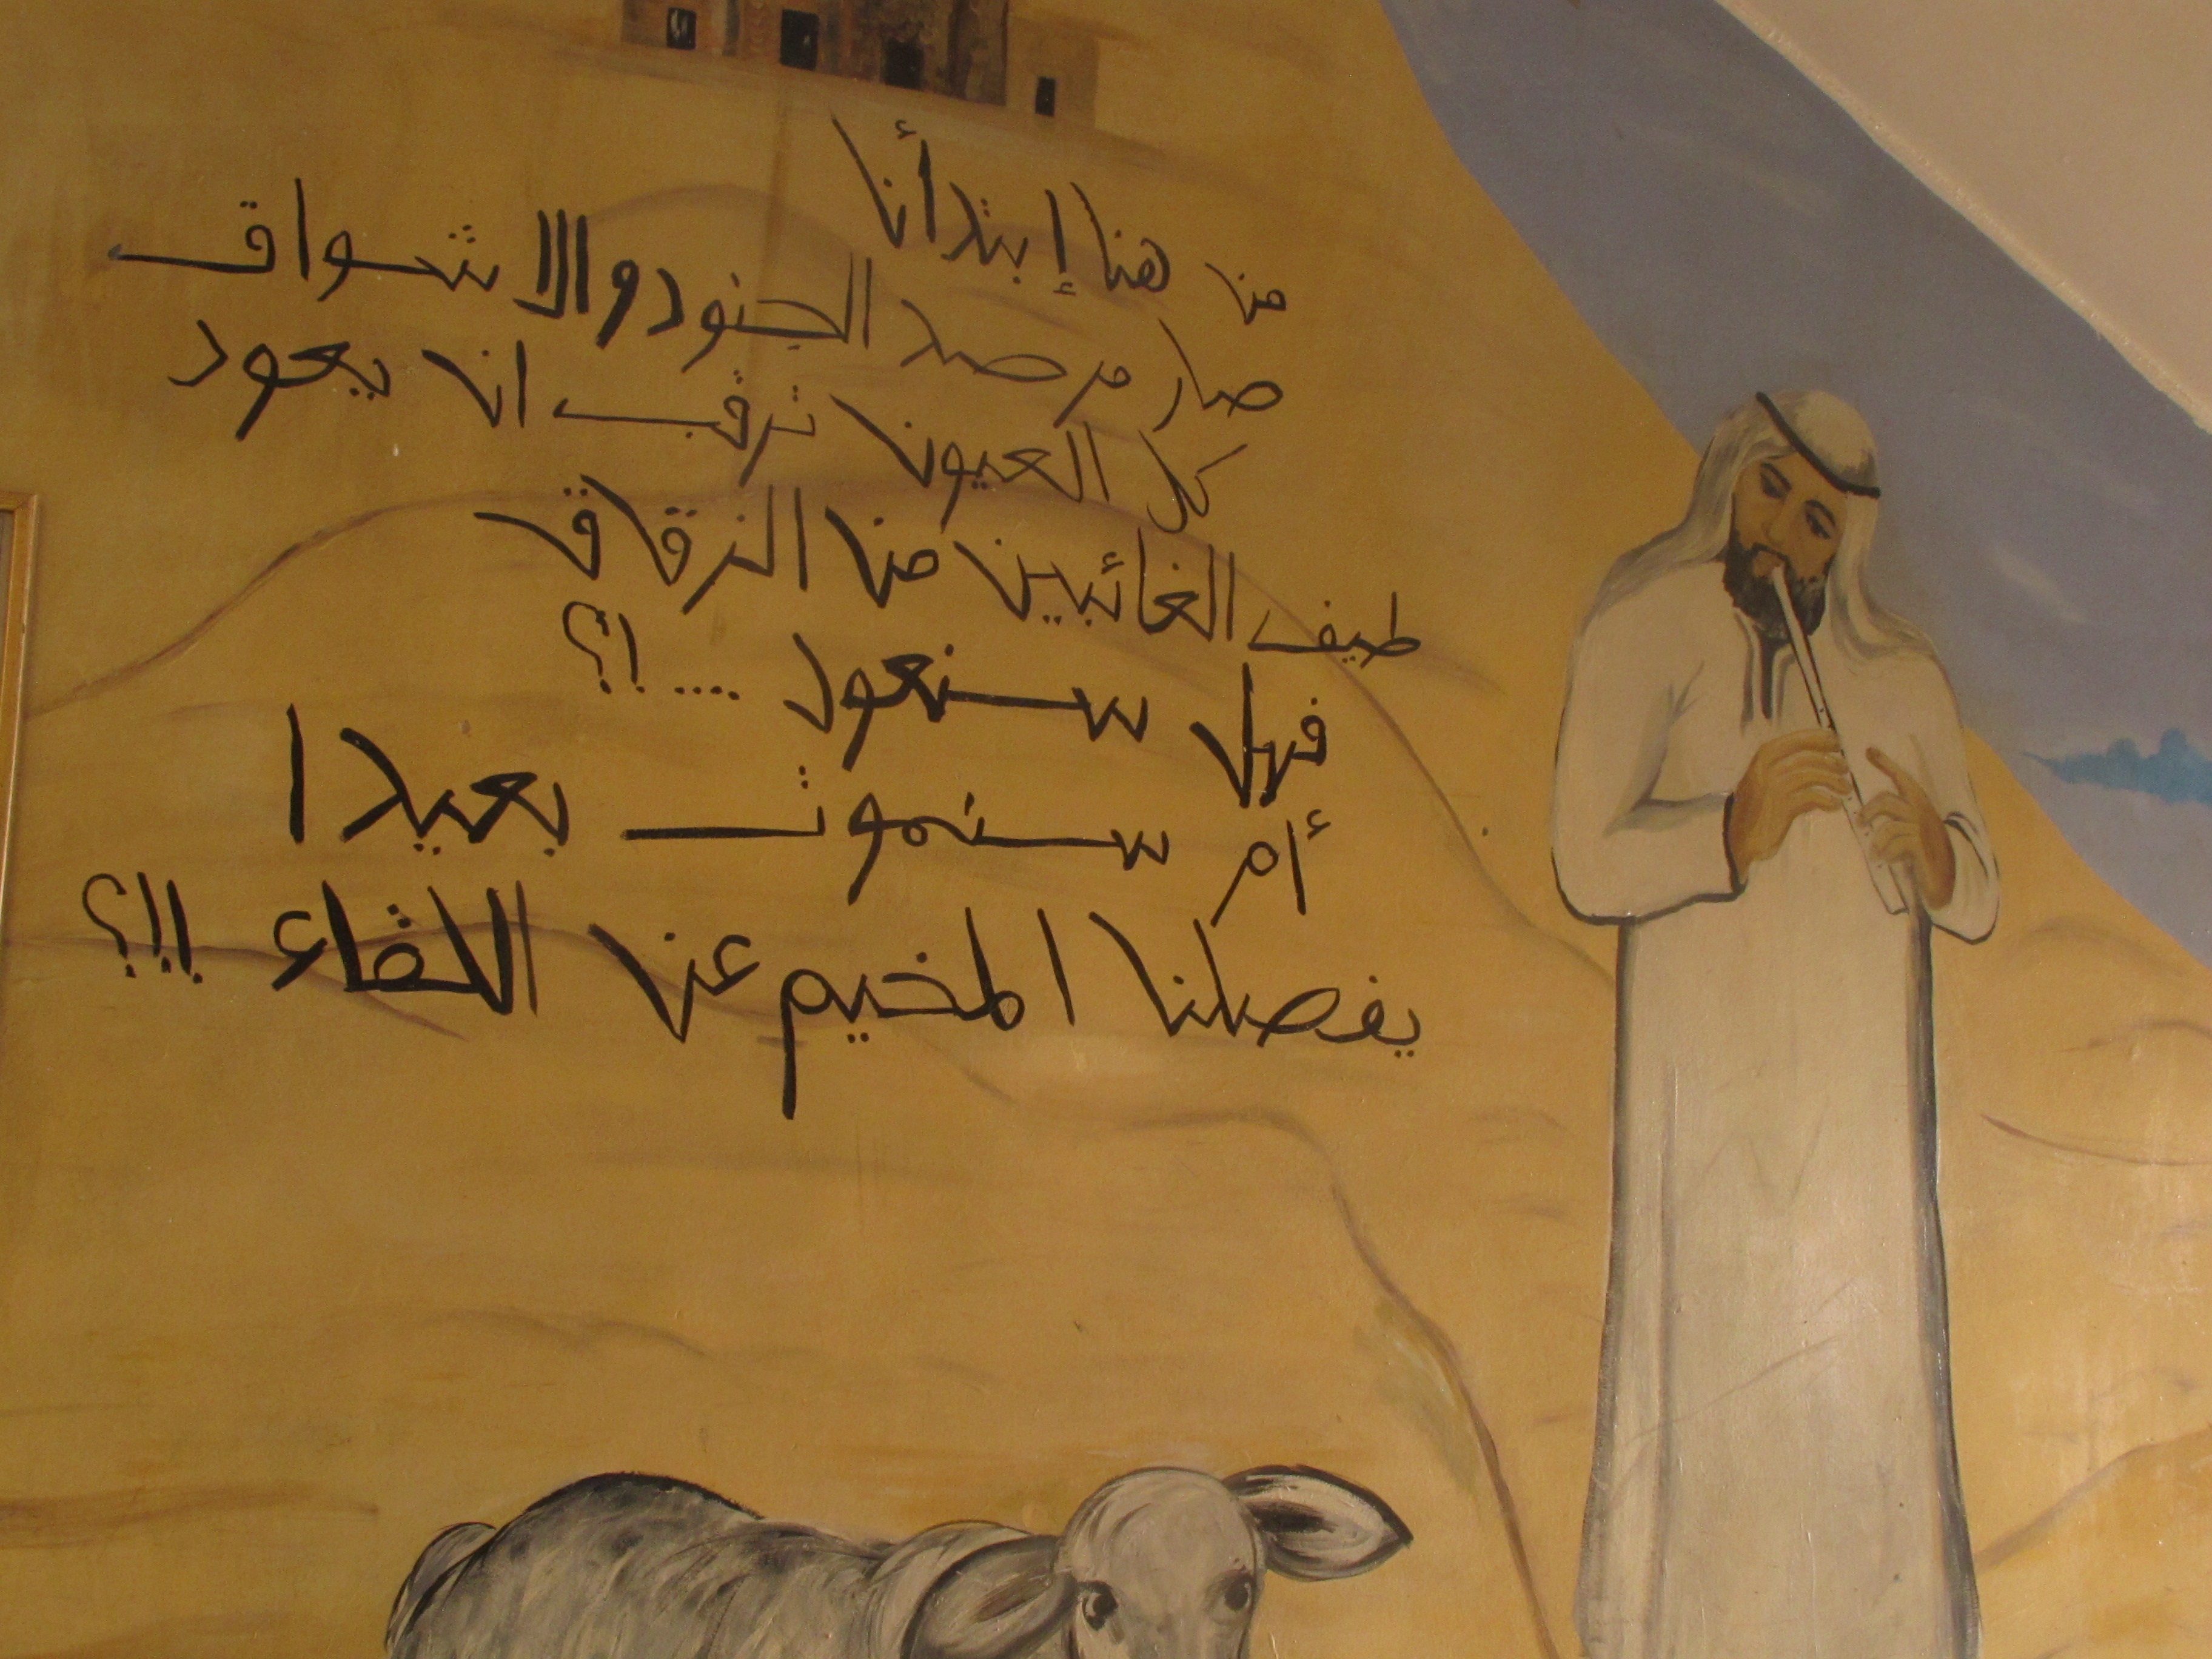 من هنا إبتدأنا
صار مرصد الجنود والاشواق
كل العيون ترقب ان يعود
طيف الغائبين من الزقاق
فهل سنعود .... !؟
أم سنموت بعيدا
يفصلنا المخيم عن اللقاء !!؟